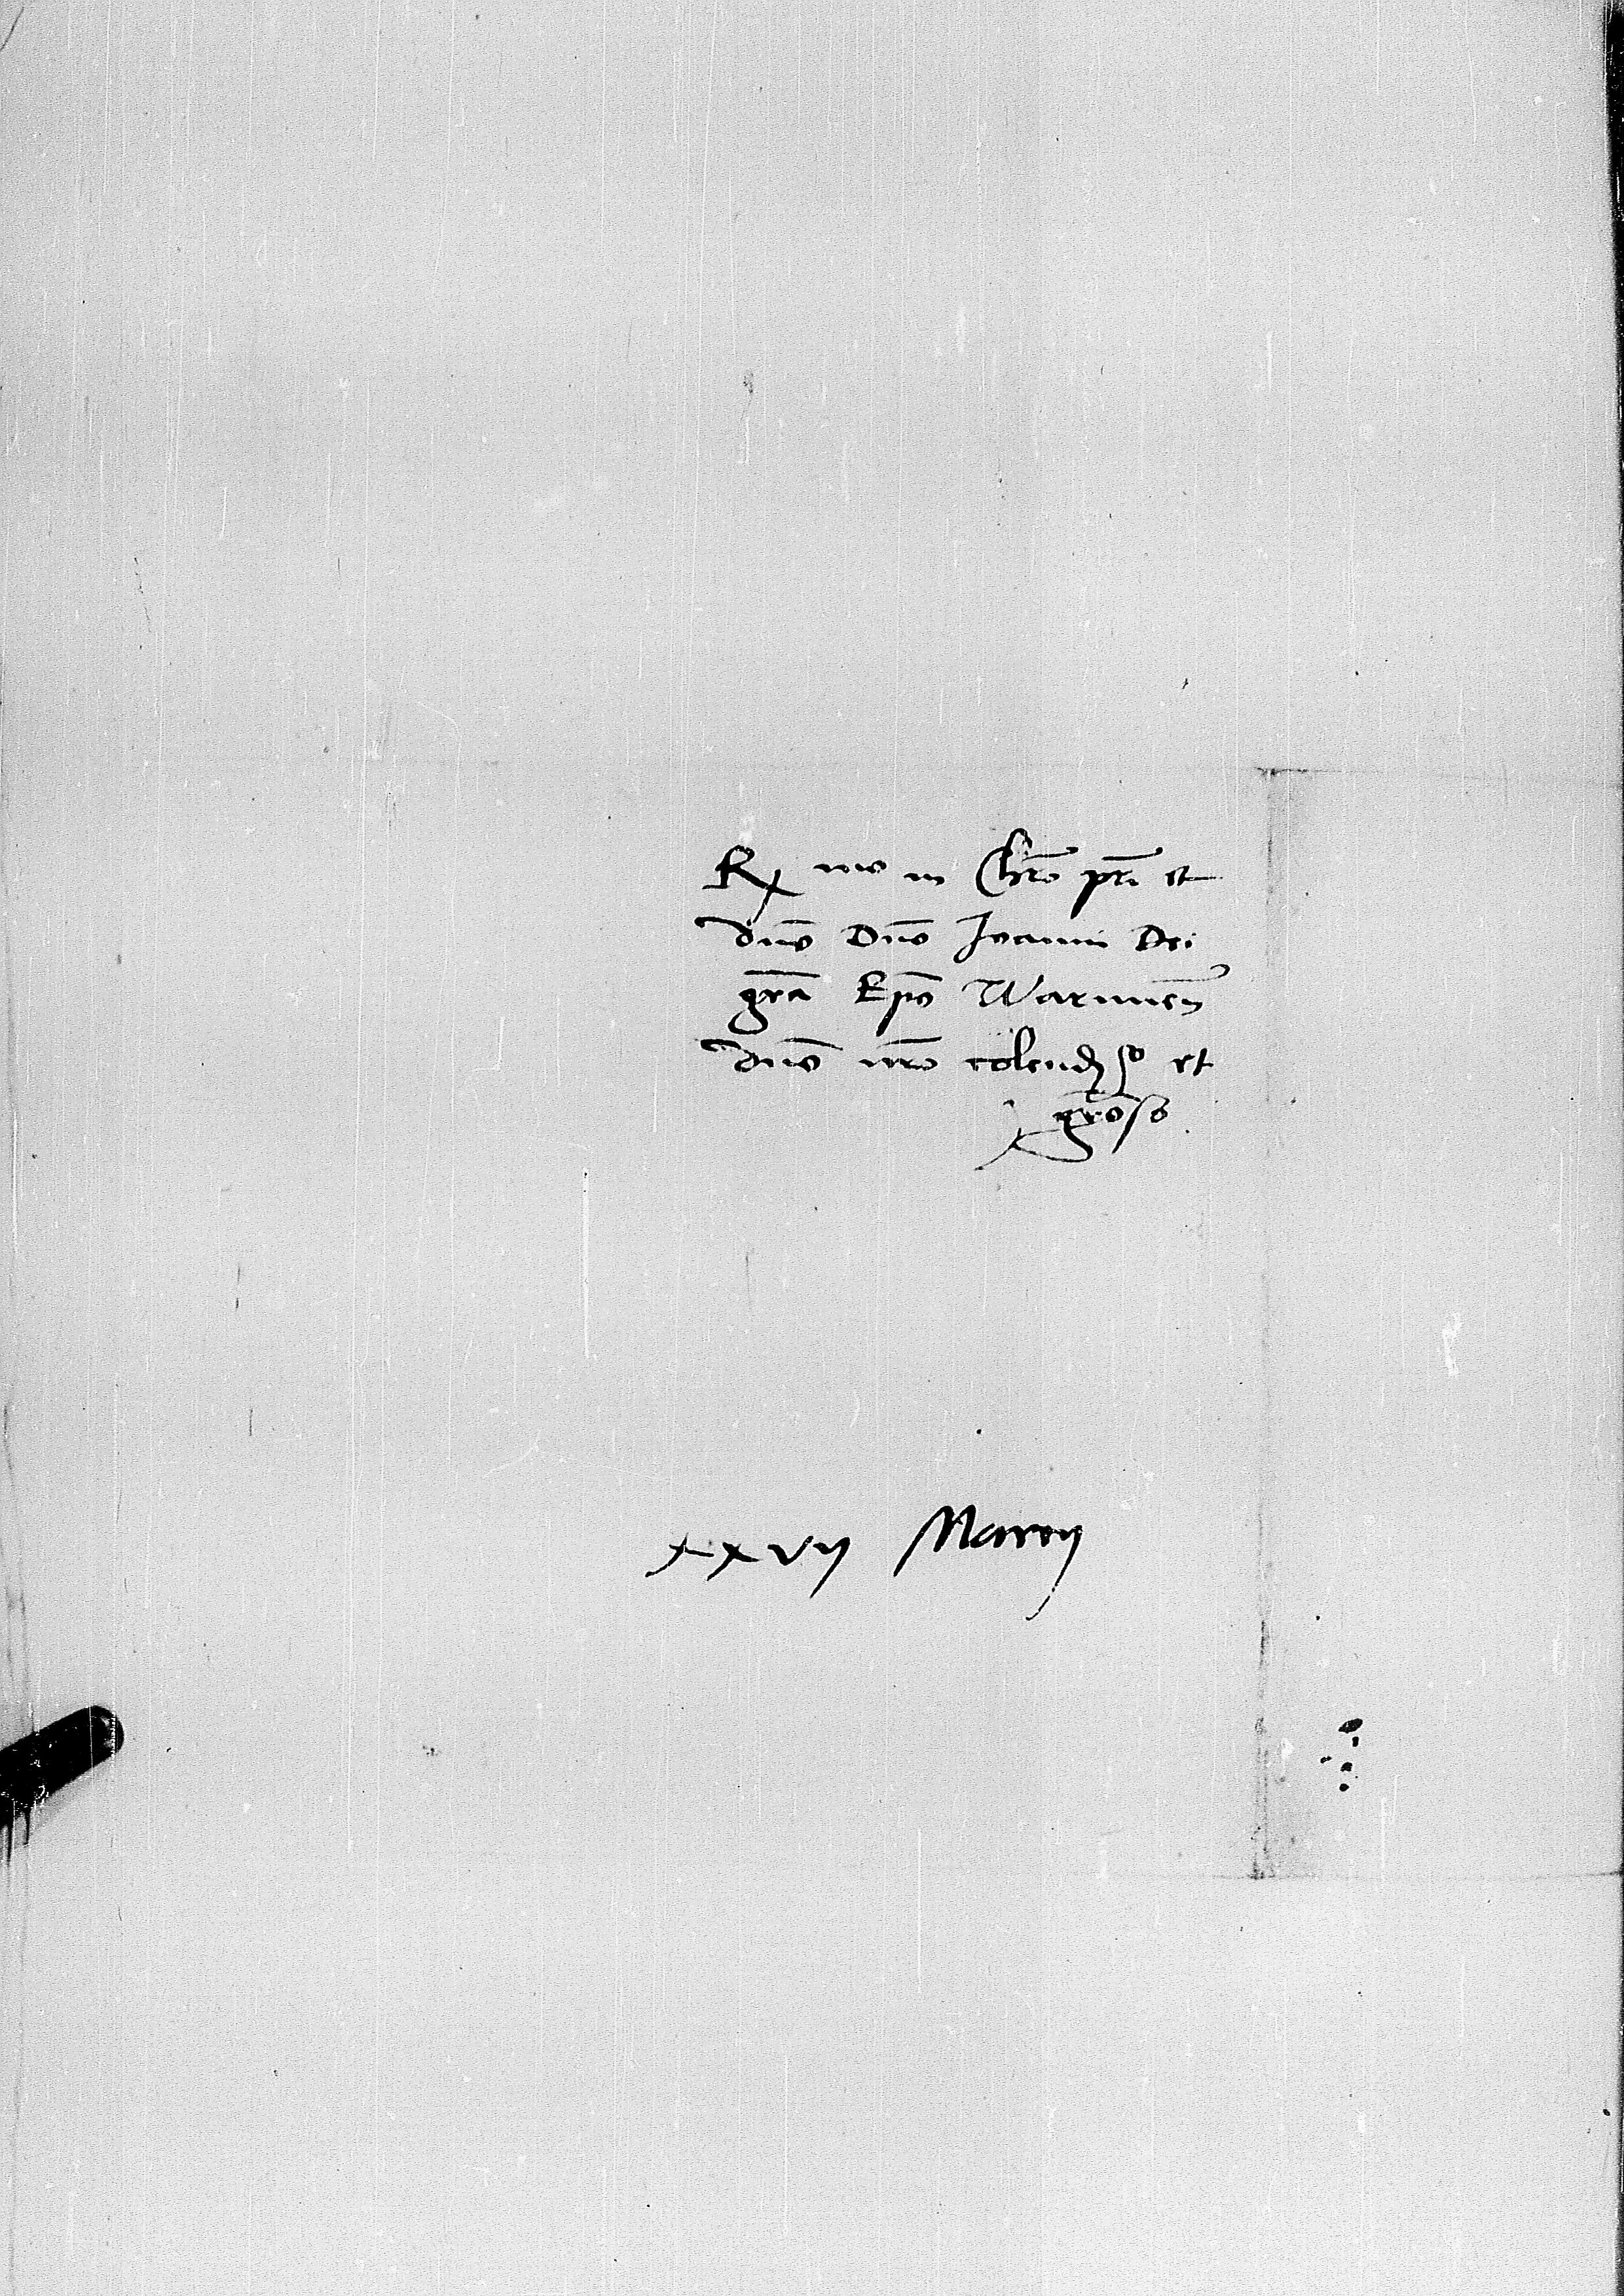 R mo in Chr̄o pr̄i et
dn̄o Dn̄o Joanni Dei
gr̄a Ep̄o Warmien̄
dn̄o nr̄o colend sso et
gr̄oso
xxvij Marcij